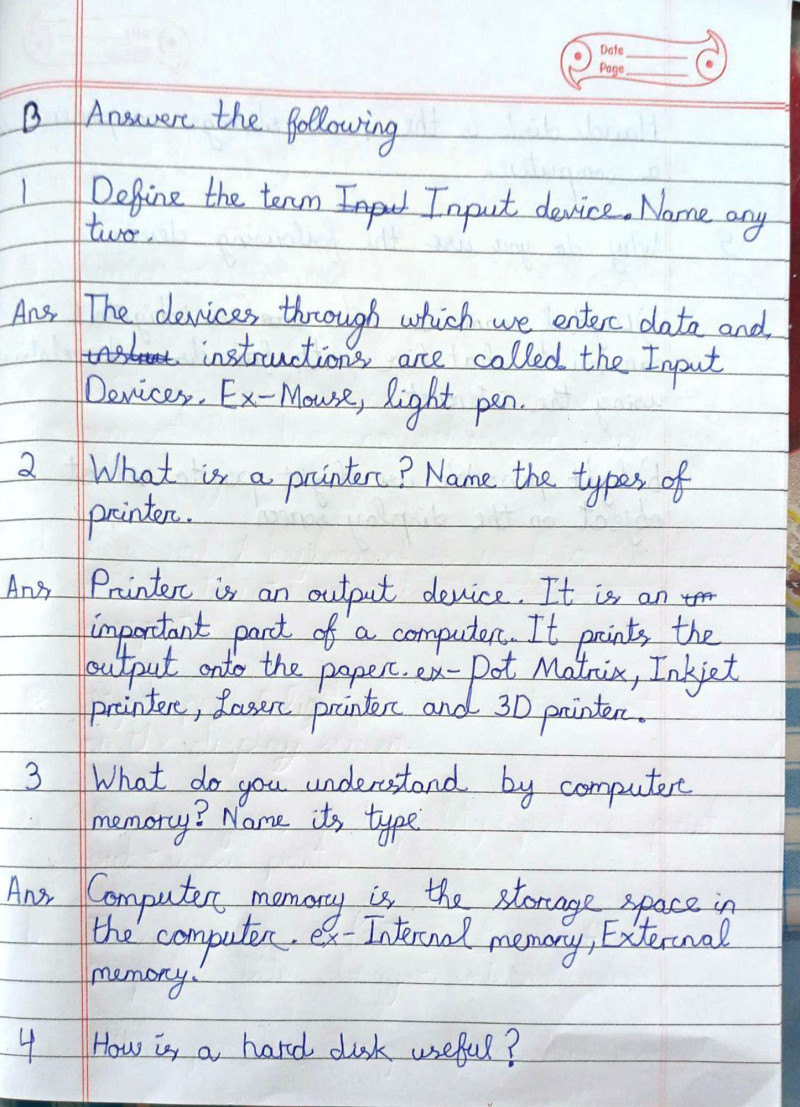 Date
Page
B Answer the following
1 Define the term Input Input device. Name any
two.
Ans The devices through which we enter data and
instructions are called the Input
Devices. Ex-Mouse, light pen.
2 What is a printer? Name the types of
printer.
Ans Printer is an output device. It is an
important part of a computer. It prints the
output onto the paper. ex- Dot Matrix, Inkjet
printer, Laser printer and 3D printer.
3 What do you understand by computer
memory? Name its type
Ans Computer memory is the storage space in
the computer. ex- Internal memory, External
memory.
4 How is a hard disk useful?